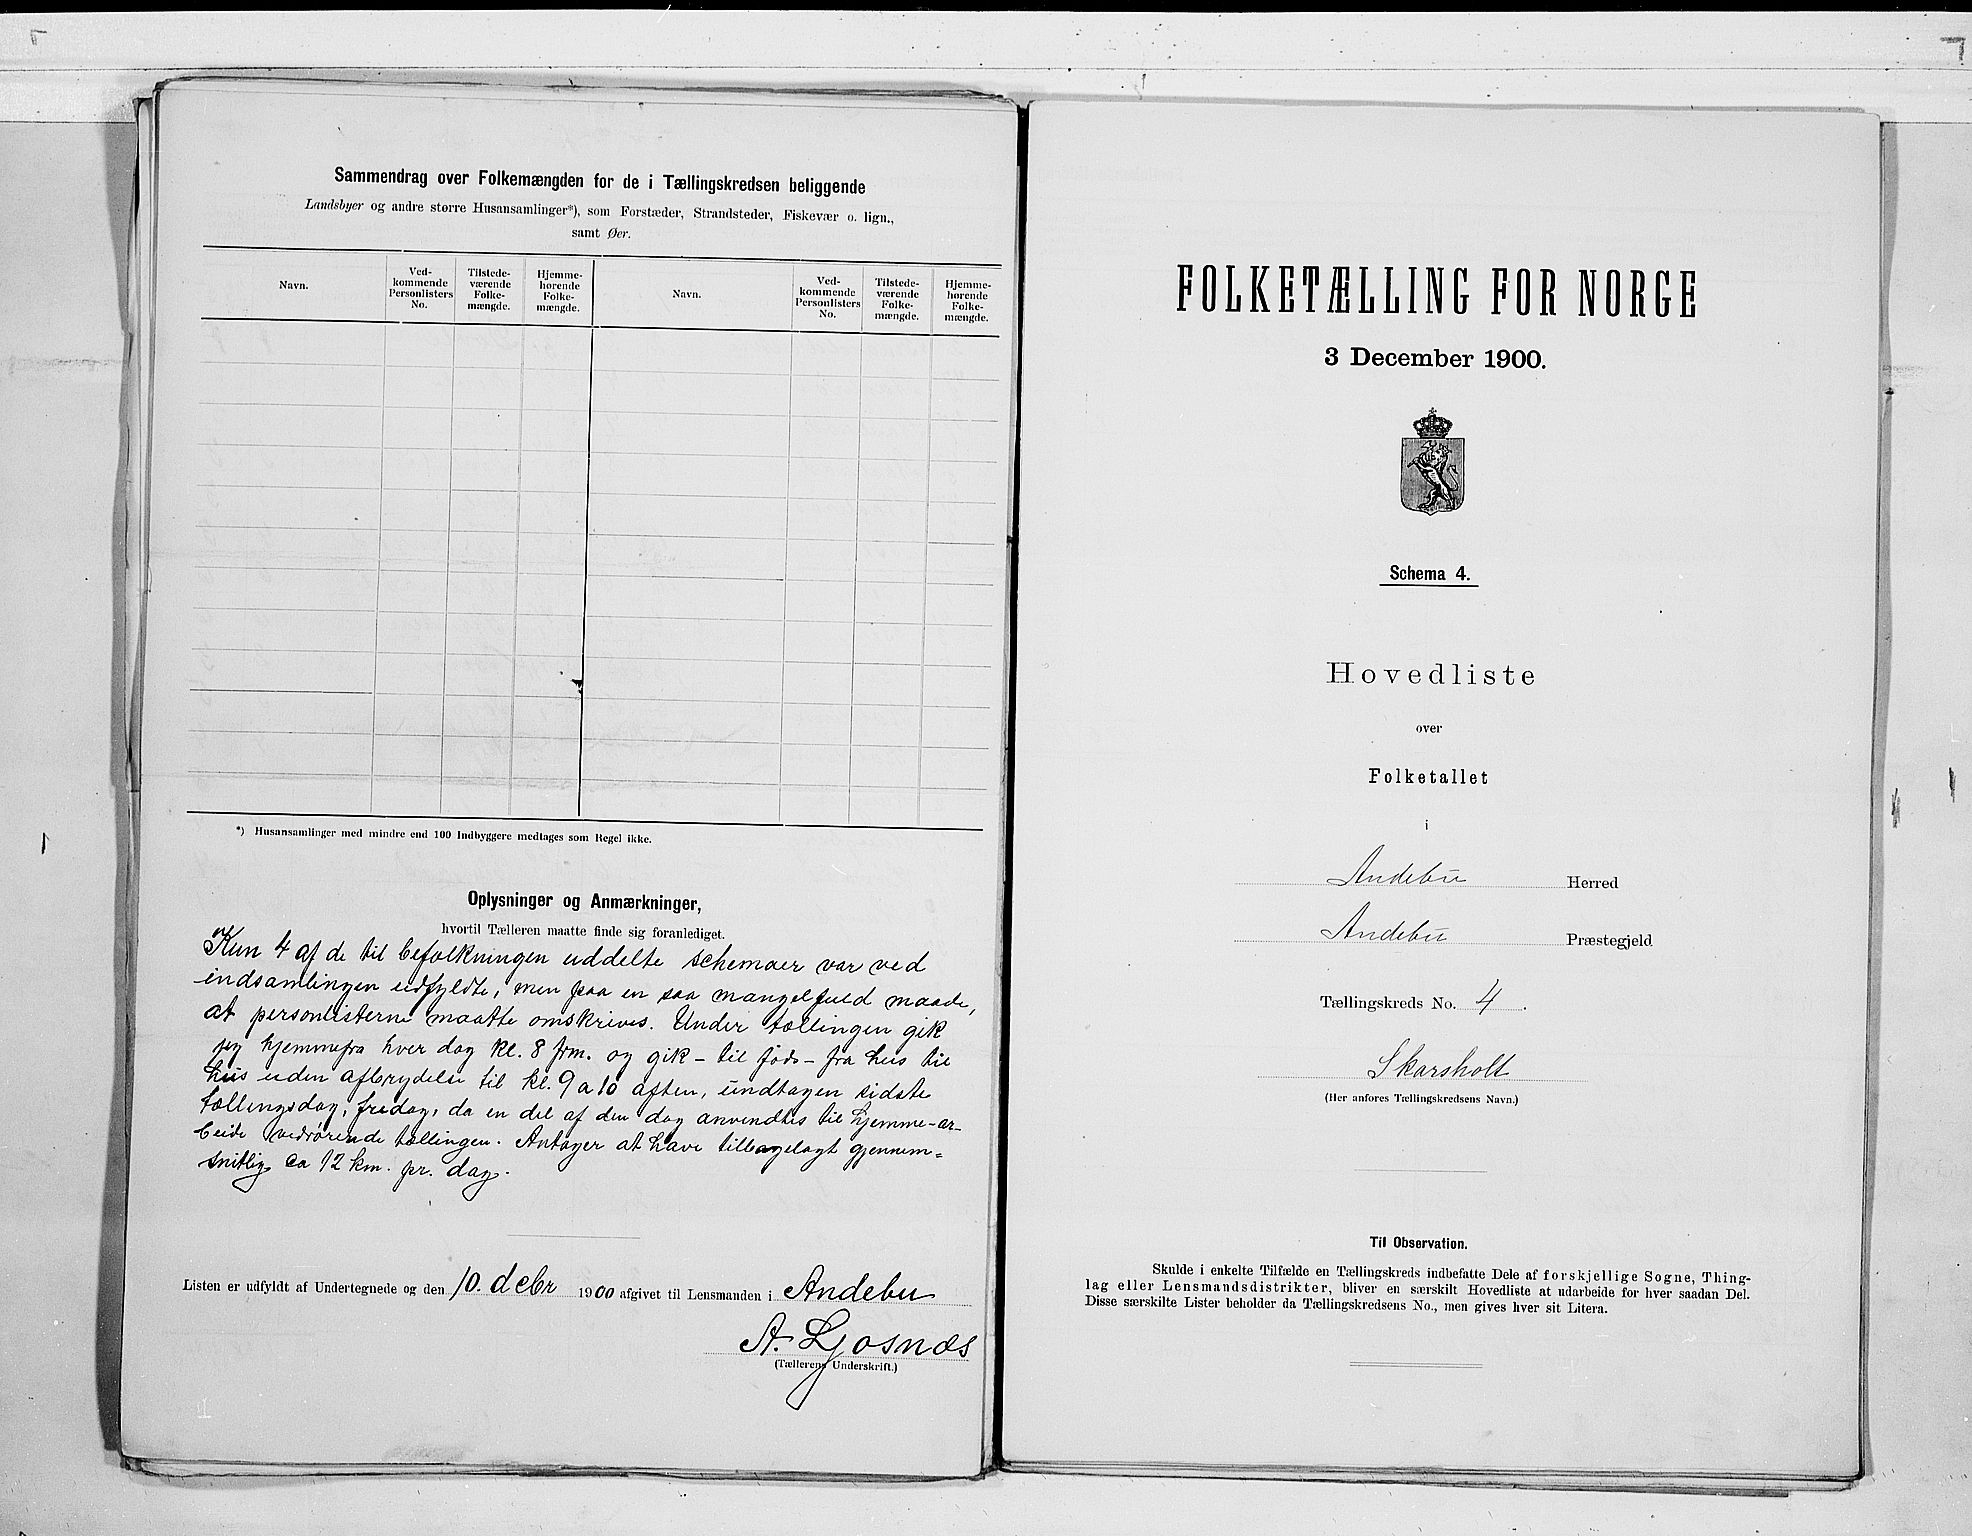 Sammendrag over Folkemængden for de i Tællingskredsen beliggende
Landsbyer og andre større Husansamlinger*), som Forstæder, Strandsteder, Fiskevær o. lign.,
samt Øer.
Navn.
Ved-
kommende
Personlisters
No.
Tilstede-
værende
Folke-
mængde.
Hjemme-
hørende
Folke-
mængde.
Navn.
Ved-
kommende
Personlisters
No.
Tilstede-
værende
Folke-
mængde.
Hjemme-
hørende
Folke-
mængde.
*) Husansamlinger med mindre end 100 Indbyggere medtages som Regel ikke.
Oplysninger og Anmærkninger,
hvortil Tælleren maatte finde sig foranlediget.
Kun 4 af de til befolkningen uddelte schemaer var ved
indsamlingen udfyldte, men paa en saa mangelfuld maade,
at personlisterne maatte omskrives. Under tællingen gik
jeg hjemmefra hver dag kl. 8 frm. og gik - til fods - fra hus til
hus uden afbrydelse til kl. 9 a 10 aften, undtagen sidste
tællingsdag, fredag, da en del af den dag anvendtes til hjemme-ar-
beide vedrørende tællingen. Antager at have tilbagelagt gjennem=
snitlig ca 12 km. pr. dag.
Listen er udfyldt af Undertegnede og den 10. debr 1900 afgivet til Lensmanden i Andebu
A. Ljosnæs
(Tællerens Underskrift.)
FOLKETÆLLING FOR NORGE
3 December 1900.
Schema 4.
Hovedliste
over
Folketallet
i
Andebu Herred
Andebu Præstegjeld
Tællingskreds No. 4.
Skarsholt
(Her anføres Tællingskredsens Navn.)
Til Observation.
Skulde i enkelte Tilfælde en Tællingskreds indbefatte Dele af forskjellige Sogne, Thing-
lag eller Lensmandsdistrikter, bliver en særskilt Hovedliste at udarbeide for hver saadan Del.
Disse særskilte Lister beholder da Tællingskredsens No., men gives hver sit Litera.